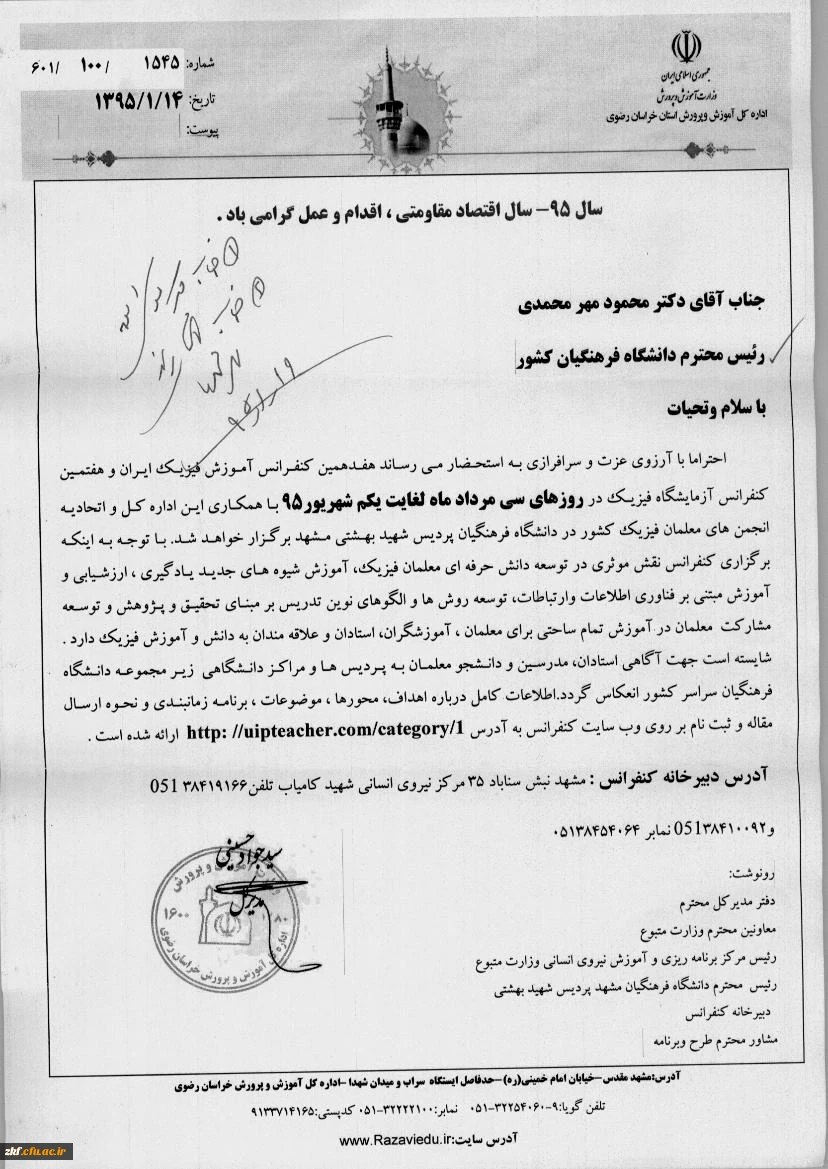 جمهوری اسلامی ایران
وزارت آموزش و پرورش
اداره کل آموزش وپرورش استان خراسان رضوی
شماره: ۱۵۴۵ /۱۰۰ /۶۰۱
تاریخ: ۱۳۹۵/۱/۱۴
پیوست:
سال ۹۵- سال اقتصاد مقاومتی ، اقدام و عمل گرامی باد .
جناب آقای دکتر محمود مهر محمدی
رئیس محترم دانشگاه فرهنگیان کشور
با سلام وتحیات
احتراما با آرزوی عزت و سرافرازی به استحضار می رساند هفدهمین کنفرانس آموزش فیزیک ایران و هفتمین
کنفرانس آزمایشگاه فیزیک در روزهای سی مرداد ماه لغایت یکم شهریور۹۵ با همکاری این اداره کل و اتحادیه
انجمن های معلمان فیزیک کشور در دانشگاه فرهنگیان پردیس شهید بهشتی مشهد برگزار خواهد شد. با توجه به اینکه
برگزاری کنفرانس نقش موثری در توسعه دانش حرفه ای معلمان فیزیک، آموزش شیوه های جدید یادگیری ، ارزشیابی و
آموزش مبتنی بر فناوری اطلاعات وارتباطات، توسعه روش ها و الگوهای نوین تدریس بر مبنای تحقیق و پژوهش و توسعه
مشارکت معلمان در آموزش تمام ساحتی برای معلمان ، آموزشگران، استادان و علاقه مندان به دانش و آموزش فیزیک دارد .
شایسته است جهت آگاهی استادان، مدرسین و دانشجو معلمان به پردیس ها و مراکز دانشگاهی زیر مجموعه دانشگاه
فرهنگیان سراسر کشور انعکاس گردد.اطلاعات کامل درباره اهداف، محورها ، موضوعات ، برنامه زمانبندی و نحوه ارسال
مقاله و ثبت نام بر روی وب سایت کنفرانس به آدرس http: //uipteacher.com/category/1 ارائه شده است .
آدرس دبیرخانه کنفرانس : مشهد نبش سناباد ۳۵ مرکز نیروی انسانی شهید کامیاب تلفن۳۸۴۱۹۱۶۶ 051
و۰۵۱۳۸۴۱۰۰۹۲ نمابر ۰۵۱۳۸۴۵۴۰۶۴
سید جواد حسینی
مدیرکل
رونوشت:
دفتر مدیر کل محترم
معاونین محترم وزارت متبوع
رئیس مرکز برنامه ریزی و آموزش نیروی انسانی وزارت متبوع
رئیس محترم دانشگاه فرهنگیان مشهد پردیس شهید بهشتی
دبیرخانه کنفرانس
مشاور محترم طرح وبرنامه
آدرس:مشهد مقدس-خیابان امام خمینی(ره) -حدفاصل ایستگاه سراب و میدان شهدا -اداره کل آموزش و پرورش خراسان رضوی
تلفن گویا:۹-۳۲۲۵۴۰۶۰-۰۵۱ نمابر:۳۲۲۲۲۱۰۰-۰۵۱ کدپستی:۹۱۳۳۷۱۴۱۶۵
آدرس سایت:www.Razaviedu.ir
zkf.cfu.ac.ir